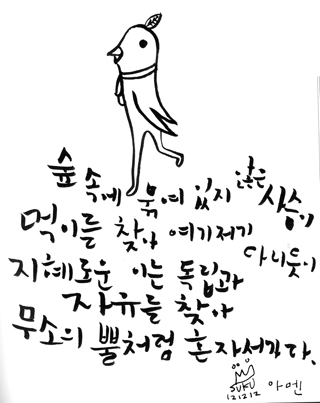 숲 속에 묶여 있지 않은 사슴이
먹이를 찾아 여기저기 다니듯이
지혜로운 이는 독립과
자유를 찾아
무소의 뿔처럼 혼자서 가라.
SUKU
121212
아멘